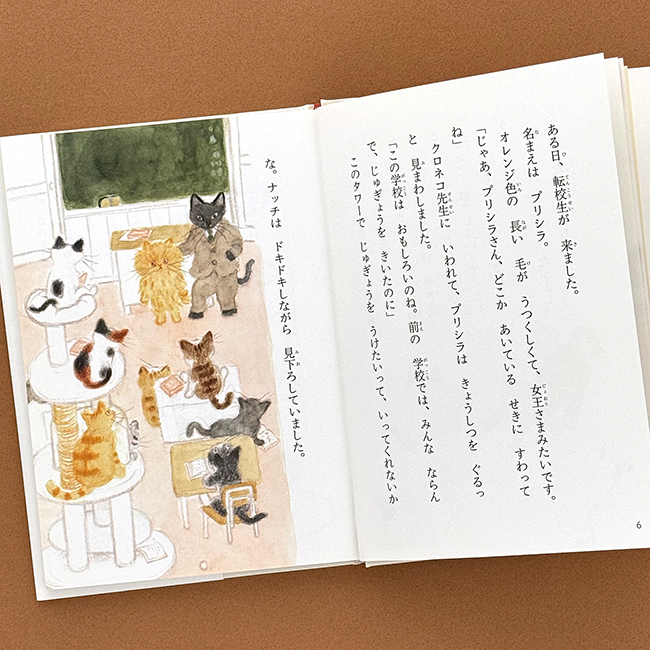 ある日、転校生が 来ました。
名まえは プリシラ。
オレンジ色の 長い 毛が うつくしくて、女王さまみたいです。
「じゃあ、プリシラさん、どこか あいている せきに すわって
ね」
クロネコ先生に いわれて、プリシラは きょうしつを ぐるっ
と 見まわしました。
「この学校は おもしろいのね。前の 学校では、みんな ならん
で、じゅぎょうを きいたのに」
このタワーで じゅぎょうを うけたいって、いってくれないか
な。ナッチは ドキドキしながら 見下ろしていました。
6